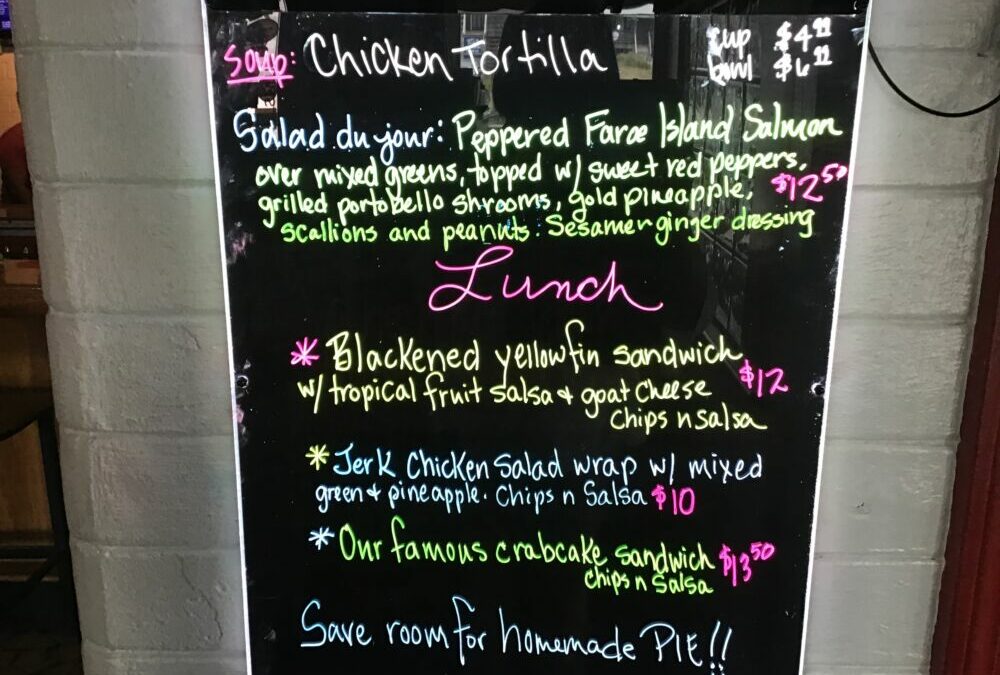 Soup: Chicken Tortilla cup $4.99
bowl $6.99
Salad du jour: Peppered Faroe Island Salmon
over mixed greens, topped w/ sweet red peppers,
grilled portobello shrooms, gold pineapple, $12.50
scallions and peanuts. Sesame ginger dressing
Lunch
* Blackened yellowfin sandwich
w/ tropical fruit salsa & goat cheese $12
Chips n Salsa
* Jerk Chicken Salad wrap w/ mixed
green & pineapple. Chips n Salsa $10
* Our famous crabcake sandwich $13.50
chips n Salsa
Save room for homemade PIE!!